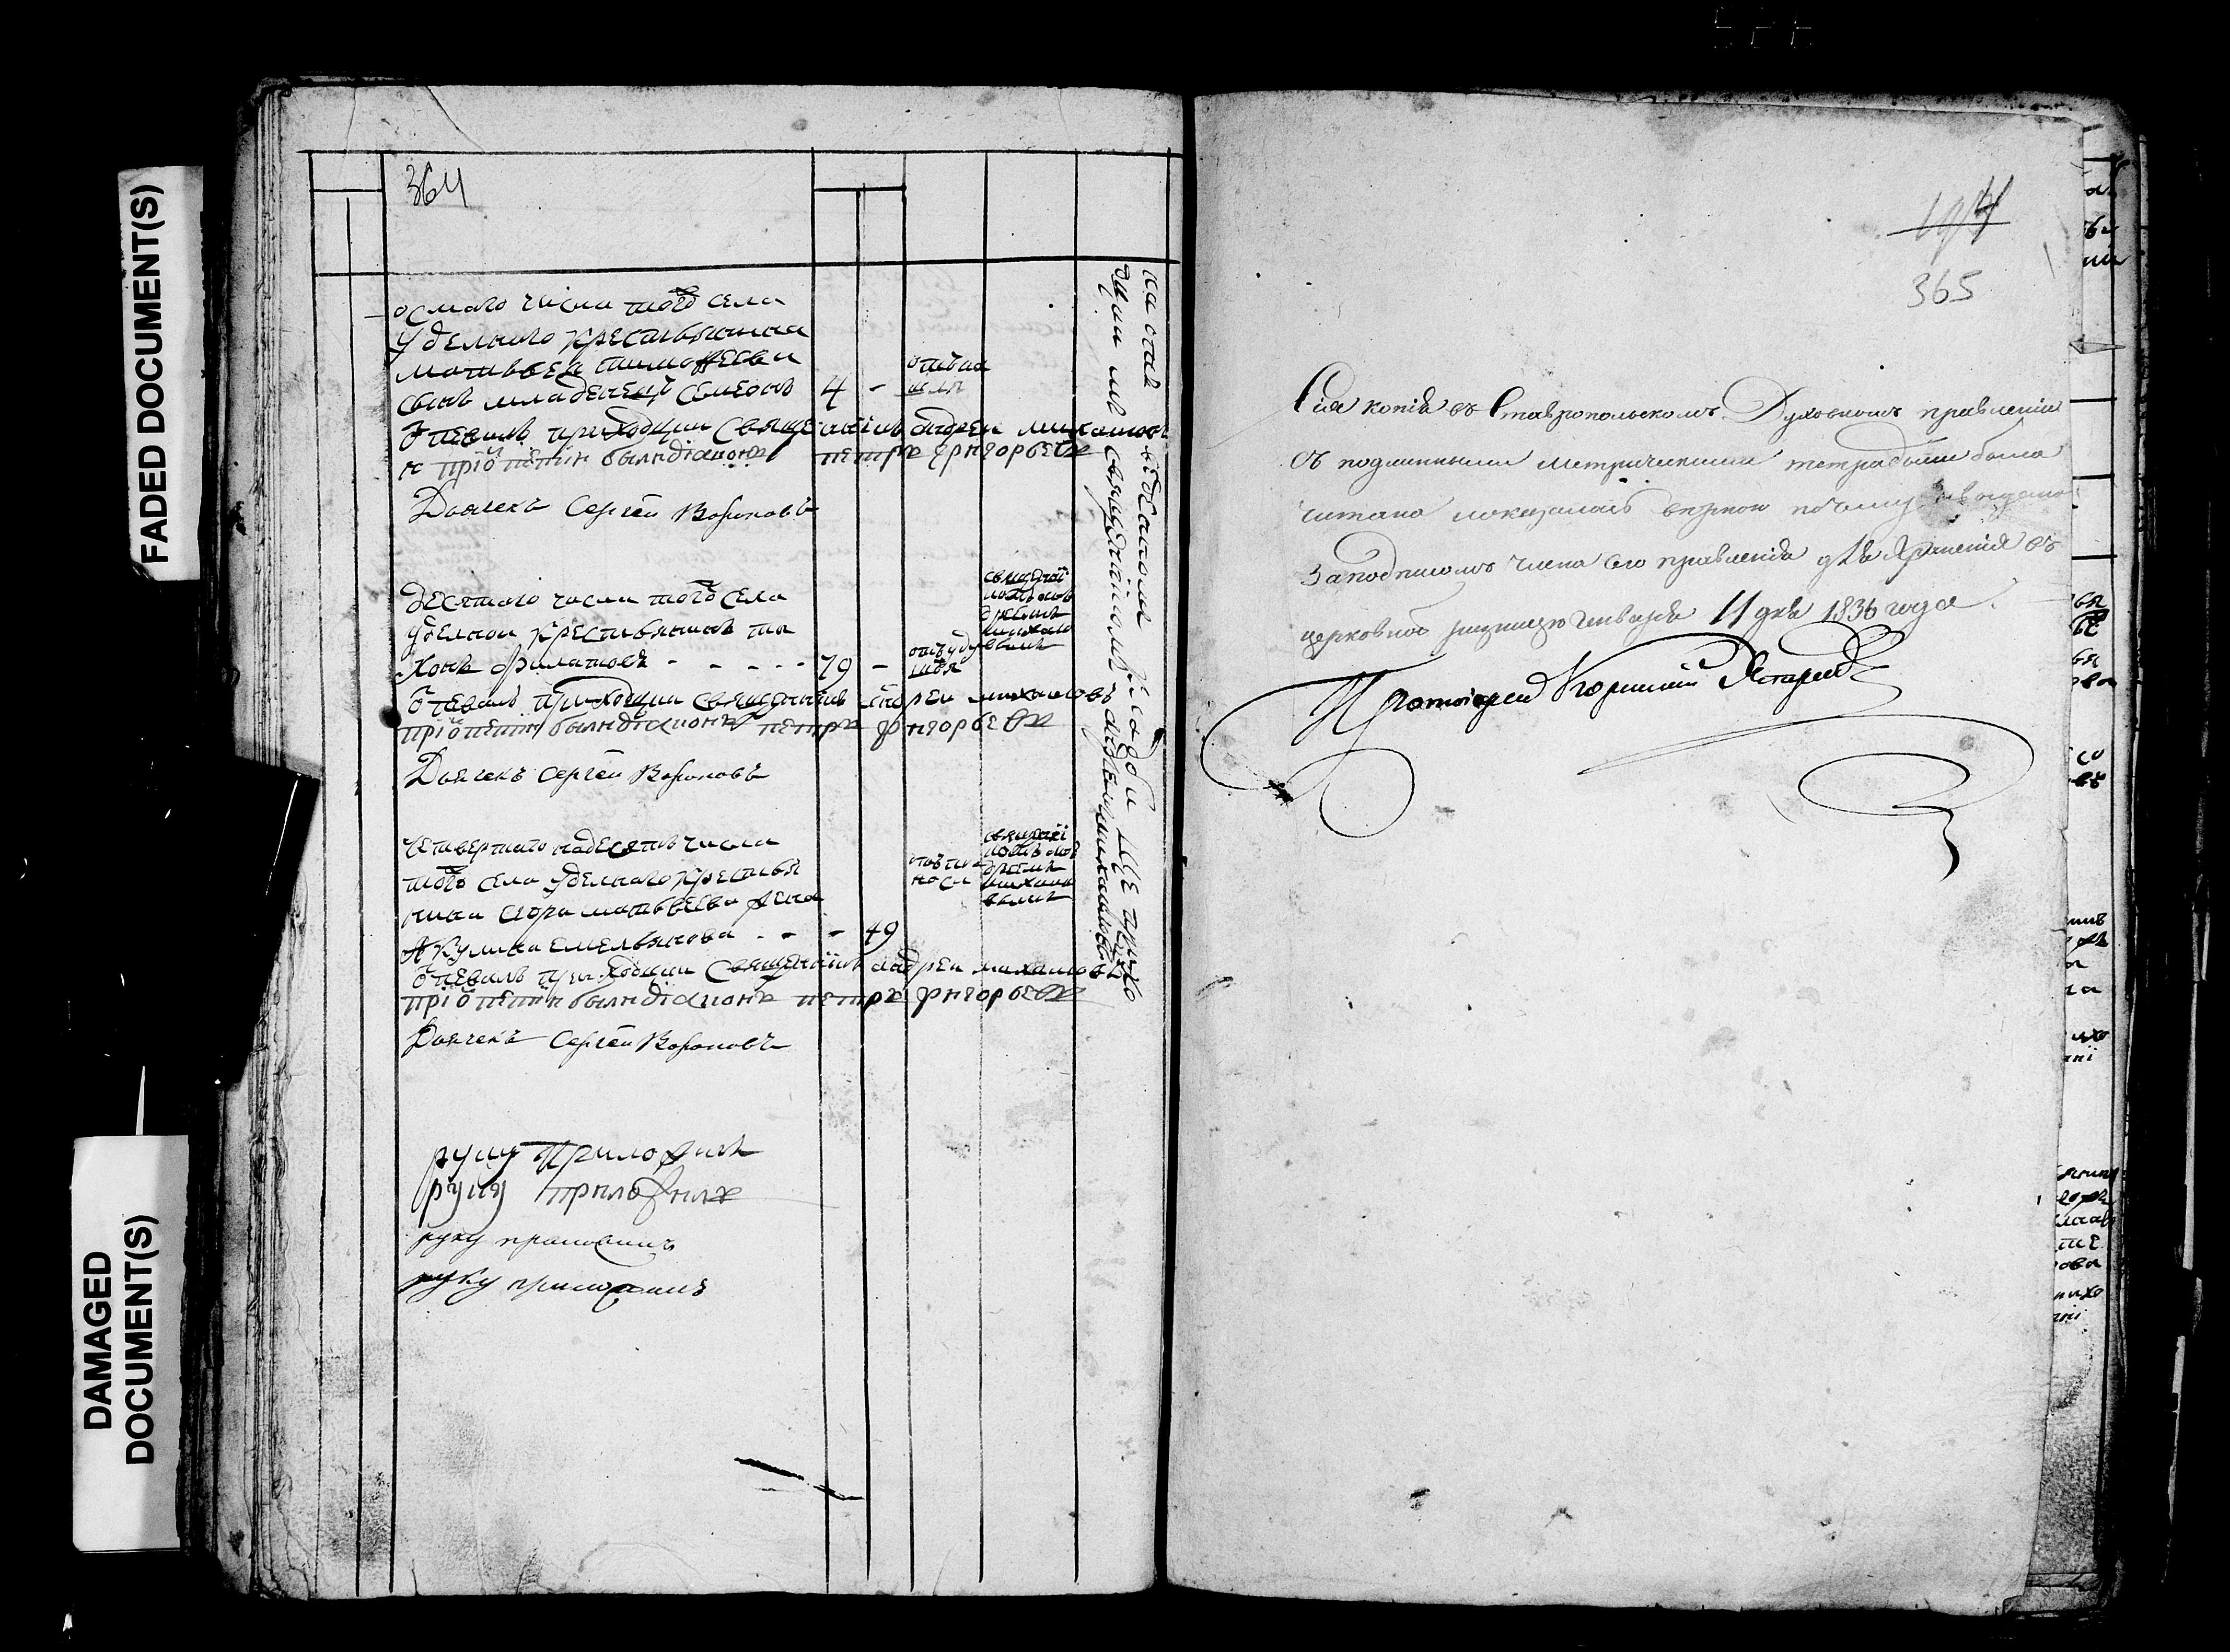 FADED DOCUMENT(S)
DAMAGED
DOCUMENT(S)
364
осмаго числа того села
удельнаго крестьянина
матвея тимофеева
сынъ младенецъ семеонъ 4 -
отпевалъ приходции священникъ андреи михаиловъ
и при отпетии были диаконъ петръ григорьевъ
Дьячекъ Сергей Вороновъ
десятаго числа того села
уделнои крестьянинъ ти
хонъ филатовъ - - - - - 79 -
отпевалъ приходции священникъ андреи михаиловъ
при отпетии были диаконъ петръ григорьевъ
Дьячекъ Сергей Вороновъ
четвертаго надесять числа
того села удельнаго крестья
нина егора матвеева жена
Акулина емельянова - - - 49
отпевалъ приходции священникъ андреи михаиловъ
при отпетии были диаконъ петръ григорьевъ
Дьячекъ Сергей Вороновъ
руку приложилъ
руку приложилъ
руку приложилъ
руку приложилъ
на
кладби
ще прихо
цким
священникомъ андреемъ михаиловымъ
365
Сия копия въ Ставропольскомъ Духовномъ правлении
съ подлинными метрическими тетрадьми была
читана показалась верною почему
За подписомъ члена сего правления для хранения въ
церковной ризнице Генваря 11 дня 1836 года.
Протоиерей